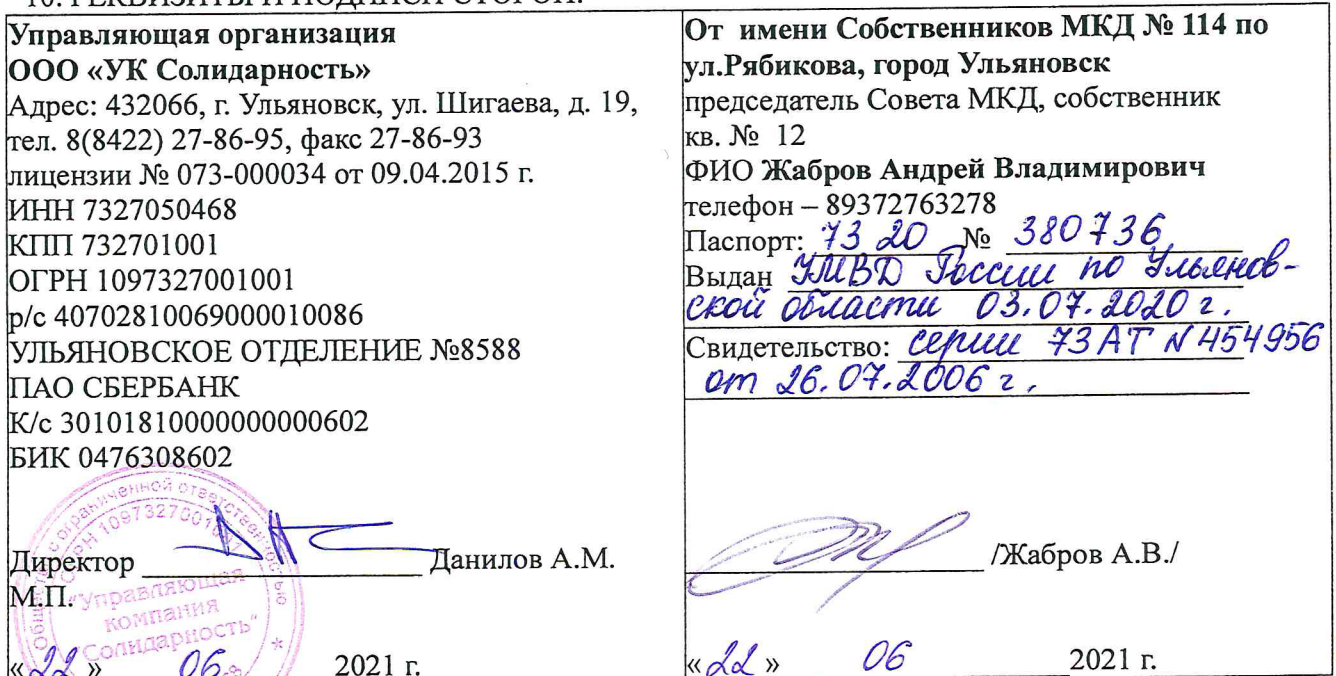 10. РЕКВИЗИТЫ И ПОДПИСИ СТОРОН:
Управляющая организация
ООО «УК Солидарность»
Адрес: 432066, г. Ульяновск, ул. Шигаева, д. 19,
тел. 8(8422) 27-86-95, факс 27-86-93
лицензии № 073-000034 от 09.04.2015 г.
ИНН 7327050468
КПП 732701001
ОГРН 1097327001001
р/с 40702810069000010086
УЛЬЯНОВСКОЕ ОТДЕЛЕНИЕ №8588
ПАО СБЕРБАНК
К/с 30101810000000000602
БИК 0476308602
Директор Данилов А.М.
М.П.
"Управляющая
компания
"Солидарность"
«22» 06 2021 г.
От имени Собственников МКД № 114 по
ул.Рябикова, город Ульяновск
председатель Совета МКД, собственник
кв. № 12
ФИО Жабров Андрей Владимирович
телефон – 89372763278
Паспорт: 73 20 № 380736
Выдан УМВД России по Ульянов-
ской области 03.07.2020 г.
Свидетельство: серии 73АТ N 454956
от 26.07.2006 г.
/Жабров А.В./
«22» 06 2021 г.